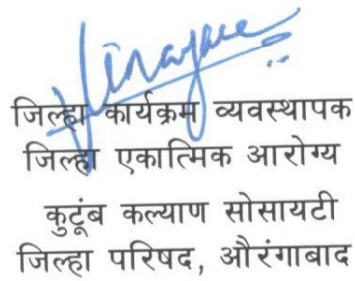 जिल्हा कार्यक्रम व्यवस्थापक
जिल्हा एकात्मिक आरोग्य
कुटूंब कल्याण सोसायटी
जिल्हा परिषद, औरंगाबाद